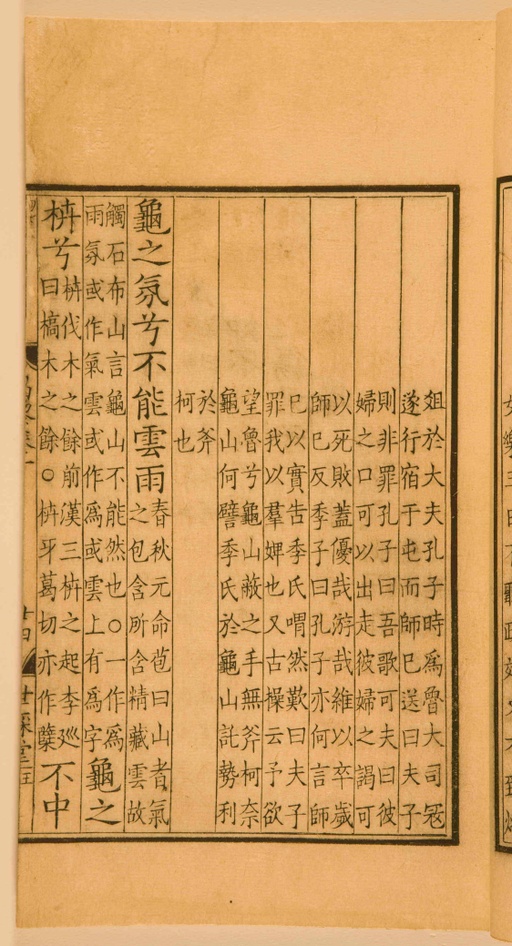 俎於大夫孔子時爲魯大司冦
遂行宿于屯而師已送曰夫子
則非罪孔子曰吾歌可夫曰彼
婦之口可以出走彼婦之謁可
以死敗蓋優哉游哉維以卒歲
師已反季子曰孔子亦何言師
已以實告季氏喟然歎曰夫子
罪我以羣婢也又古操云予欲
望魯兮龜山蔽之手無斧柯奈
龜山何譬季氏於龜山託勢利
於斧
柯也
龜之氛兮不能雲雨
春秋元命苞曰山者氣
之包含所含精藏雲故
觸石布山言龜山不能然也○一作爲
雨氛或作氣雲或作爲或雲上有爲字
龜之
枿兮
枿伐木之餘前漢三枿之起李巡
曰槁木之餘○枿牙葛切亦作蘖
不中
廿四
世綵堂